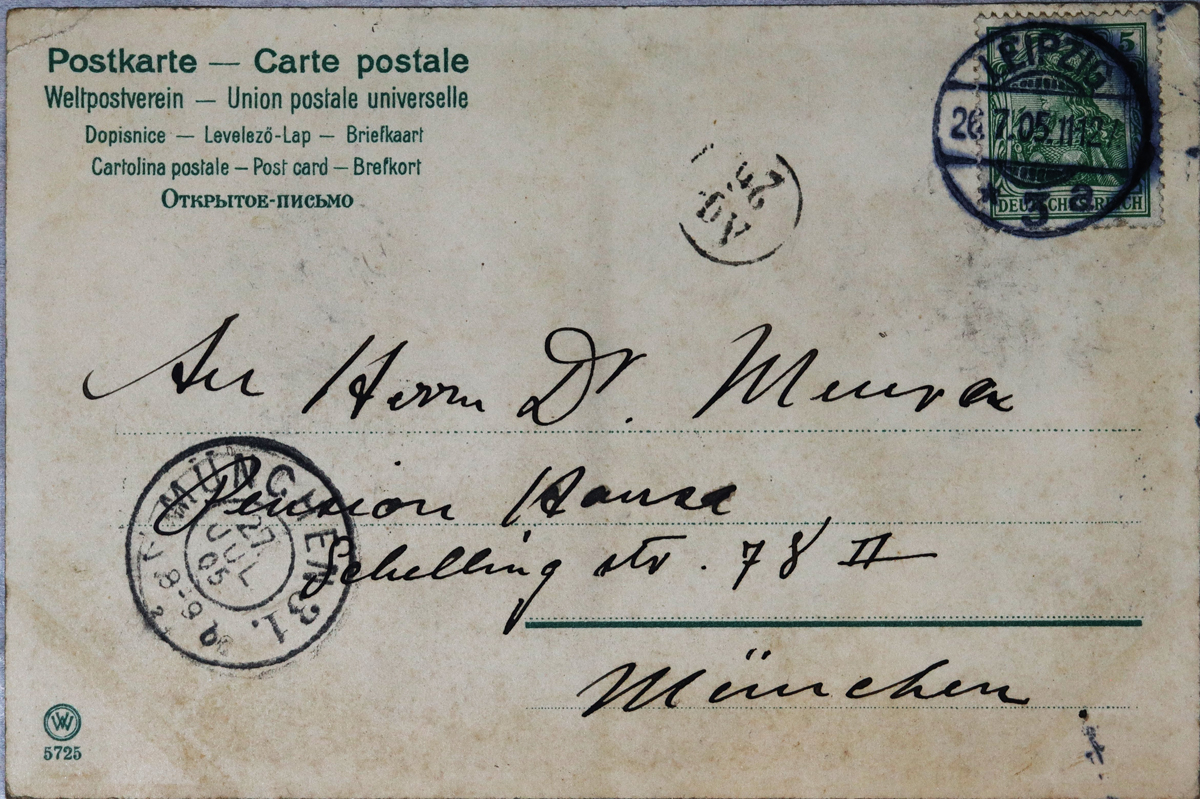 Postkarte — Carte postale
Weltpostverein — Union postale universelle
Dopisnice — Levelező-Lap — Briefkaart
Cartolina postale — Post card — Brefkort
Открытое-письмо
5
LEIPZIG
26.7.05.
* 3 a
DEUTSCHES REICH
An Herrn Dr.
Pension Hansa
Schelling str. 78 II
München
MÜNCHEN 31.
27
JUL
05
8-9
W
5725